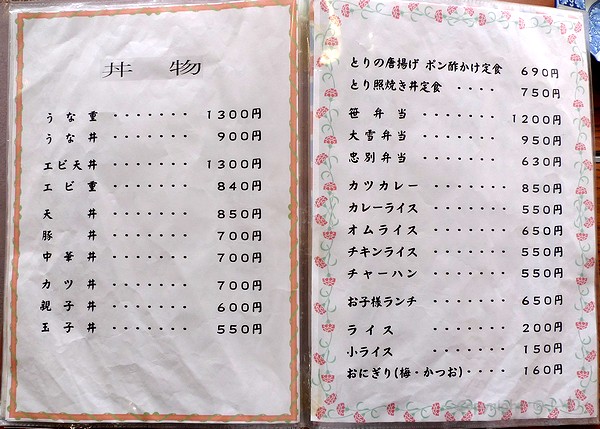 丼 物
うな重 ・・・・・・・ 1300円
うな丼 ・・・・・・・ 900円
エビ天丼 ・・・・・・・ 1300円
エビ重 ・・・・・・・ 840円
天丼 ・・・・・・・ 850円
豚丼 ・・・・・・・ 700円
中華丼 ・・・・・・・ 700円
カツ丼 ・・・・・・・ 700円
親子丼 ・・・・・・・ 600円
玉子丼 ・・・・・・・ 550円
とりの唐揚げ ポン酢かけ定食 690円
とり照焼き丼定食 ・・・・ 750円
笹弁当 ・・・・・・・ 1200円
大雪弁当 ・・・・・・・ 950円
忠別弁当 ・・・・・・・ 630円
カツカレー ・・・・・・・ 850円
カレーライス ・・・・・・・ 550円
オムライス ・・・・・・・ 650円
チキンライス ・・・・・・・ 550円
チャーハン ・・・・・・・ 550円
お子様ランチ ・・・・・・・ 650円
ライス ・・・・・・・ 200円
小ライス ・・・・・・・ 150円
おにぎり(梅・かつお)・・・・ 160円